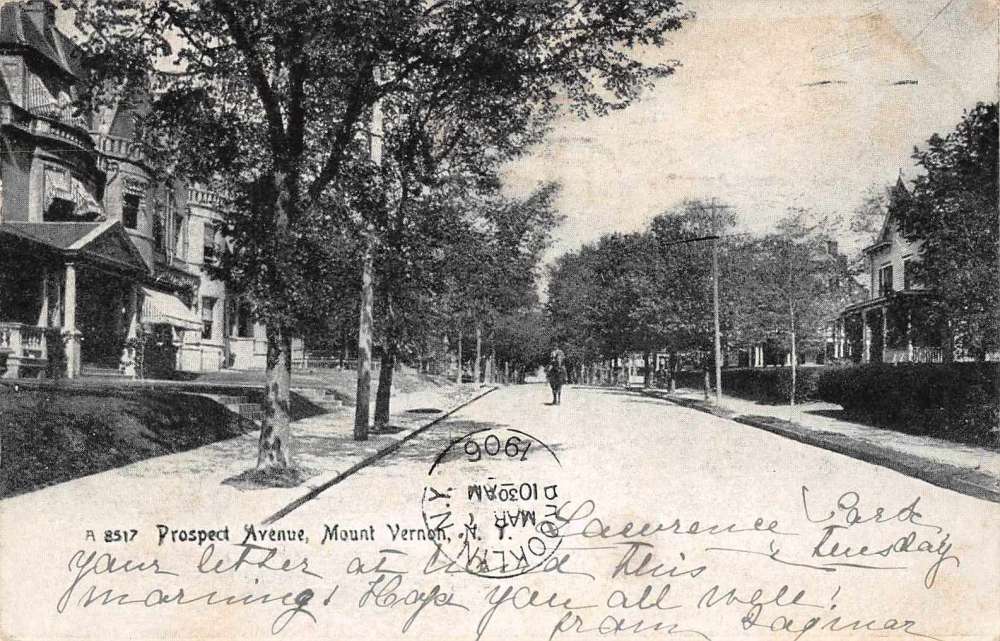 A 8517 Prospect Avenue, Mount Vernon, N. Y.
BROOKLYN N.Y.
MAR 7
D 1030AM
1906
Lawrence Park
Tuesday
your letter at hand this
morning! Hope you all well!
from Dagmar